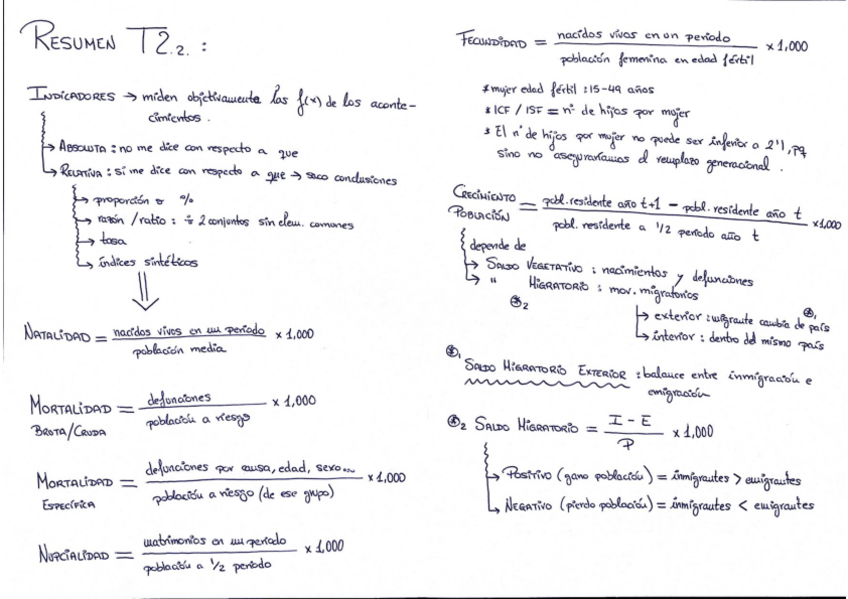 RESUMEN T2.2.:
INDICADORES → miden objetivamente las f(x) de los aconte-
cimientos.
→ ABSOLUTA: no me dice con respecto a que
→ RELATIVA: sí me dice con respecto a que → saco conclusiones
→ proporción o %
→ razón/ratio: ÷ 2 conjuntos sin elem. comunes
→ tasa
→ índices sintéticos
⇓
NATALIDAD = nacidos vivos en un periodo / población media x 1,000
MORTALIDAD BRUTA/CRUDA = defunciones / población a riesgo x 1,000
MORTALIDAD ESPECÍFICA = defunciones por causa, edad, sexo... / población a riesgo (de ese grupo) x 1,000
NUPCIALIDAD = matrimonios en un periodo / población a 1/2 periodo x 1,000
FECUNDIDAD = nacidos vivos en un periodo / población femenina en edad fértil x 1,000
* mujer edad fértil: 15-49 años
* ICF / ISF = nº de hijos por mujer
* El nº de hijos por mujer no puede ser inferior a 2'1, pq
sino no aseguraríamos el remplazo generacional.
CRECIMIENTO POBLACIÓN = pobl. residente año t+1 - pobl. residente año t / pobl. residente a 1/2 periodo año t x 1,000
depende de
→ SALDO VEGETATIVO: nacimientos y defunciones
→ " MIGRATORIO: mov. migratorios
*2
→ exterior: migrante cambia de país *1
→ interior: dentro del mismo país
*1 SALDO MIGRATORIO EXTERIOR: balance entre inmigración e
emigración
*2 SALDO MIGRATORIO = I - E / P x 1,000
→ POSITIVO (gano población) = inmigrantes > emigrantes
→ NEGATIVO (pierdo población) = inmigrantes < emigrantes